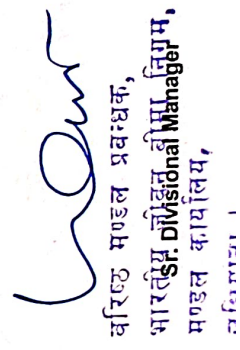 वरिष्ठ मण्डल प्रबन्धक,
भारतीय जीवन बीमा निगम,
Sr. Divisional Manager
मण्डल कार्यालय,